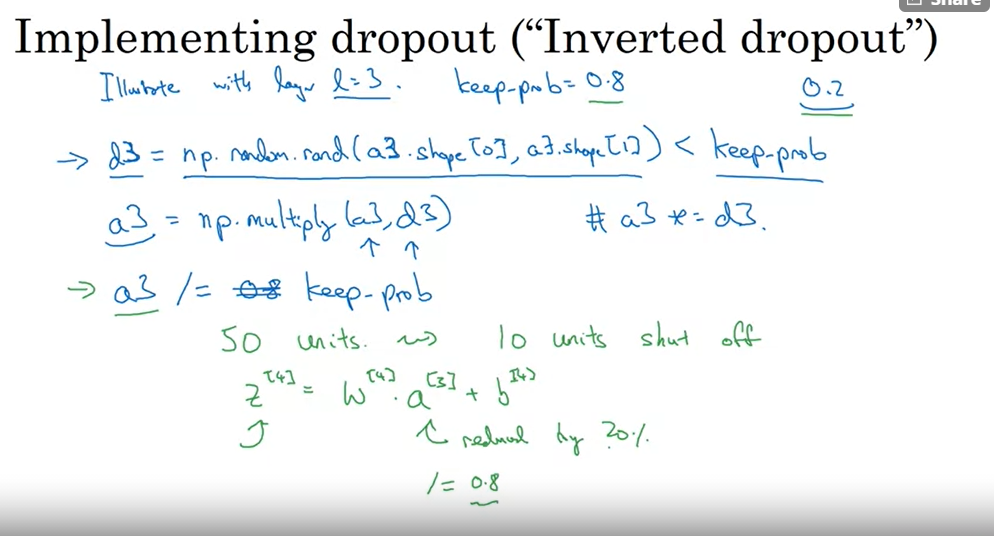 Share
Implementing dropout (“Inverted dropout”)
Illustrate with layer l=3. keep-prob= 0.8 0.2
→ d3 = np.random.rand(a3.shape[0], a3.shape[1]) < keep-prob
a3 = np.multiply(a3, d3) # a3 *= d3.
→ a3 /= 0.8 keep-prob
50 units. ⇝ 10 units shut off
z^[4] = W^[4] . a^[3] + b^[4]
reduced by 20%.
/= 0.8